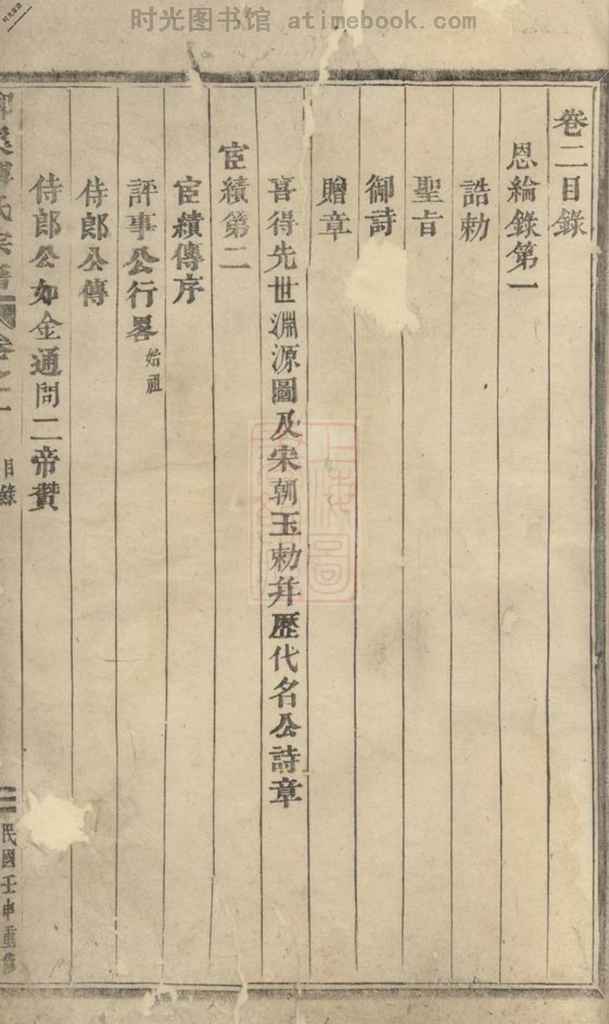 时光图书馆 atimebook.com
卷二目錄
恩綸錄第一
誥勅
聖旨
御詩
贈章
喜得先世淵源圖及宋朝玉勅幷歷代名公詩章
宦績第二
宦績傳序
評事公行畧 始祖
侍郎公傳
侍郎公如金通問二帝贊
氏宗譜 卷之二 目錄 民國壬申重修